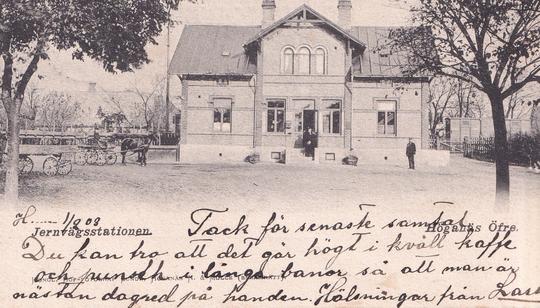 H. 1/9 03
Jernvägsstationen. Höganäs Öfre.
Tack för senaste samtal
Du kan tro att det går högt i kväll kaffe
och punsch i långa banor så att man är
nästan dagred på handen. Hälsningar från